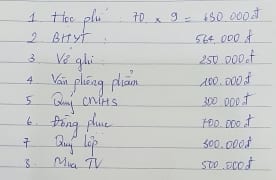 1 Học phí : 70 x 9 = 630.000đ
2 BHYT 564.000đ
3 Vở ghi 250.000đ
4 Văn phòng phẩm 100.000đ
5 Quỹ CMHS 300.000đ
6. Đồng phục 700.000đ
7 Quỹ lớp 300.000đ
8. Mua TV 500.000đ